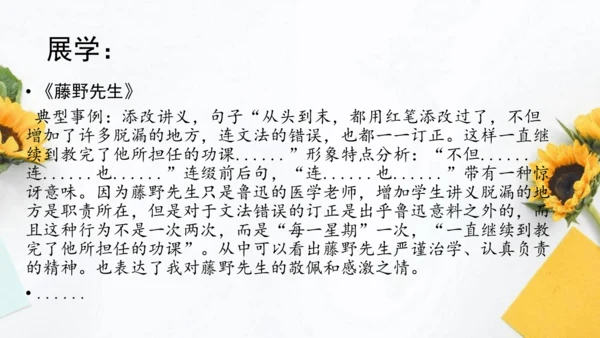 展学：
• 《藤野先生》
典型事例：添改讲义，句子“从头到末，都用红笔添改过了，不但
增加了许多脱漏的地方，连文法的错误，也都一一订正。这样一直继
续到教完了他所担任的功课......”形象特点分析：“不但......
连......也......”连缀前后句，“连......也......”带有一种惊
讶意味。因为藤野先生只是鲁迅的医学老师，增加学生讲义脱漏的地
方是职责所在，但是对于文法错误的订正是出乎鲁迅意料之外的，而
且这种行为不是一次两次，而是“每一星期”一次，“一直继续到教
完了他所担任的功课”。从中可以看出藤野先生严谨治学、认真负责
的精神。也表达了我对藤野先生的敬佩和感激之情。
• ......